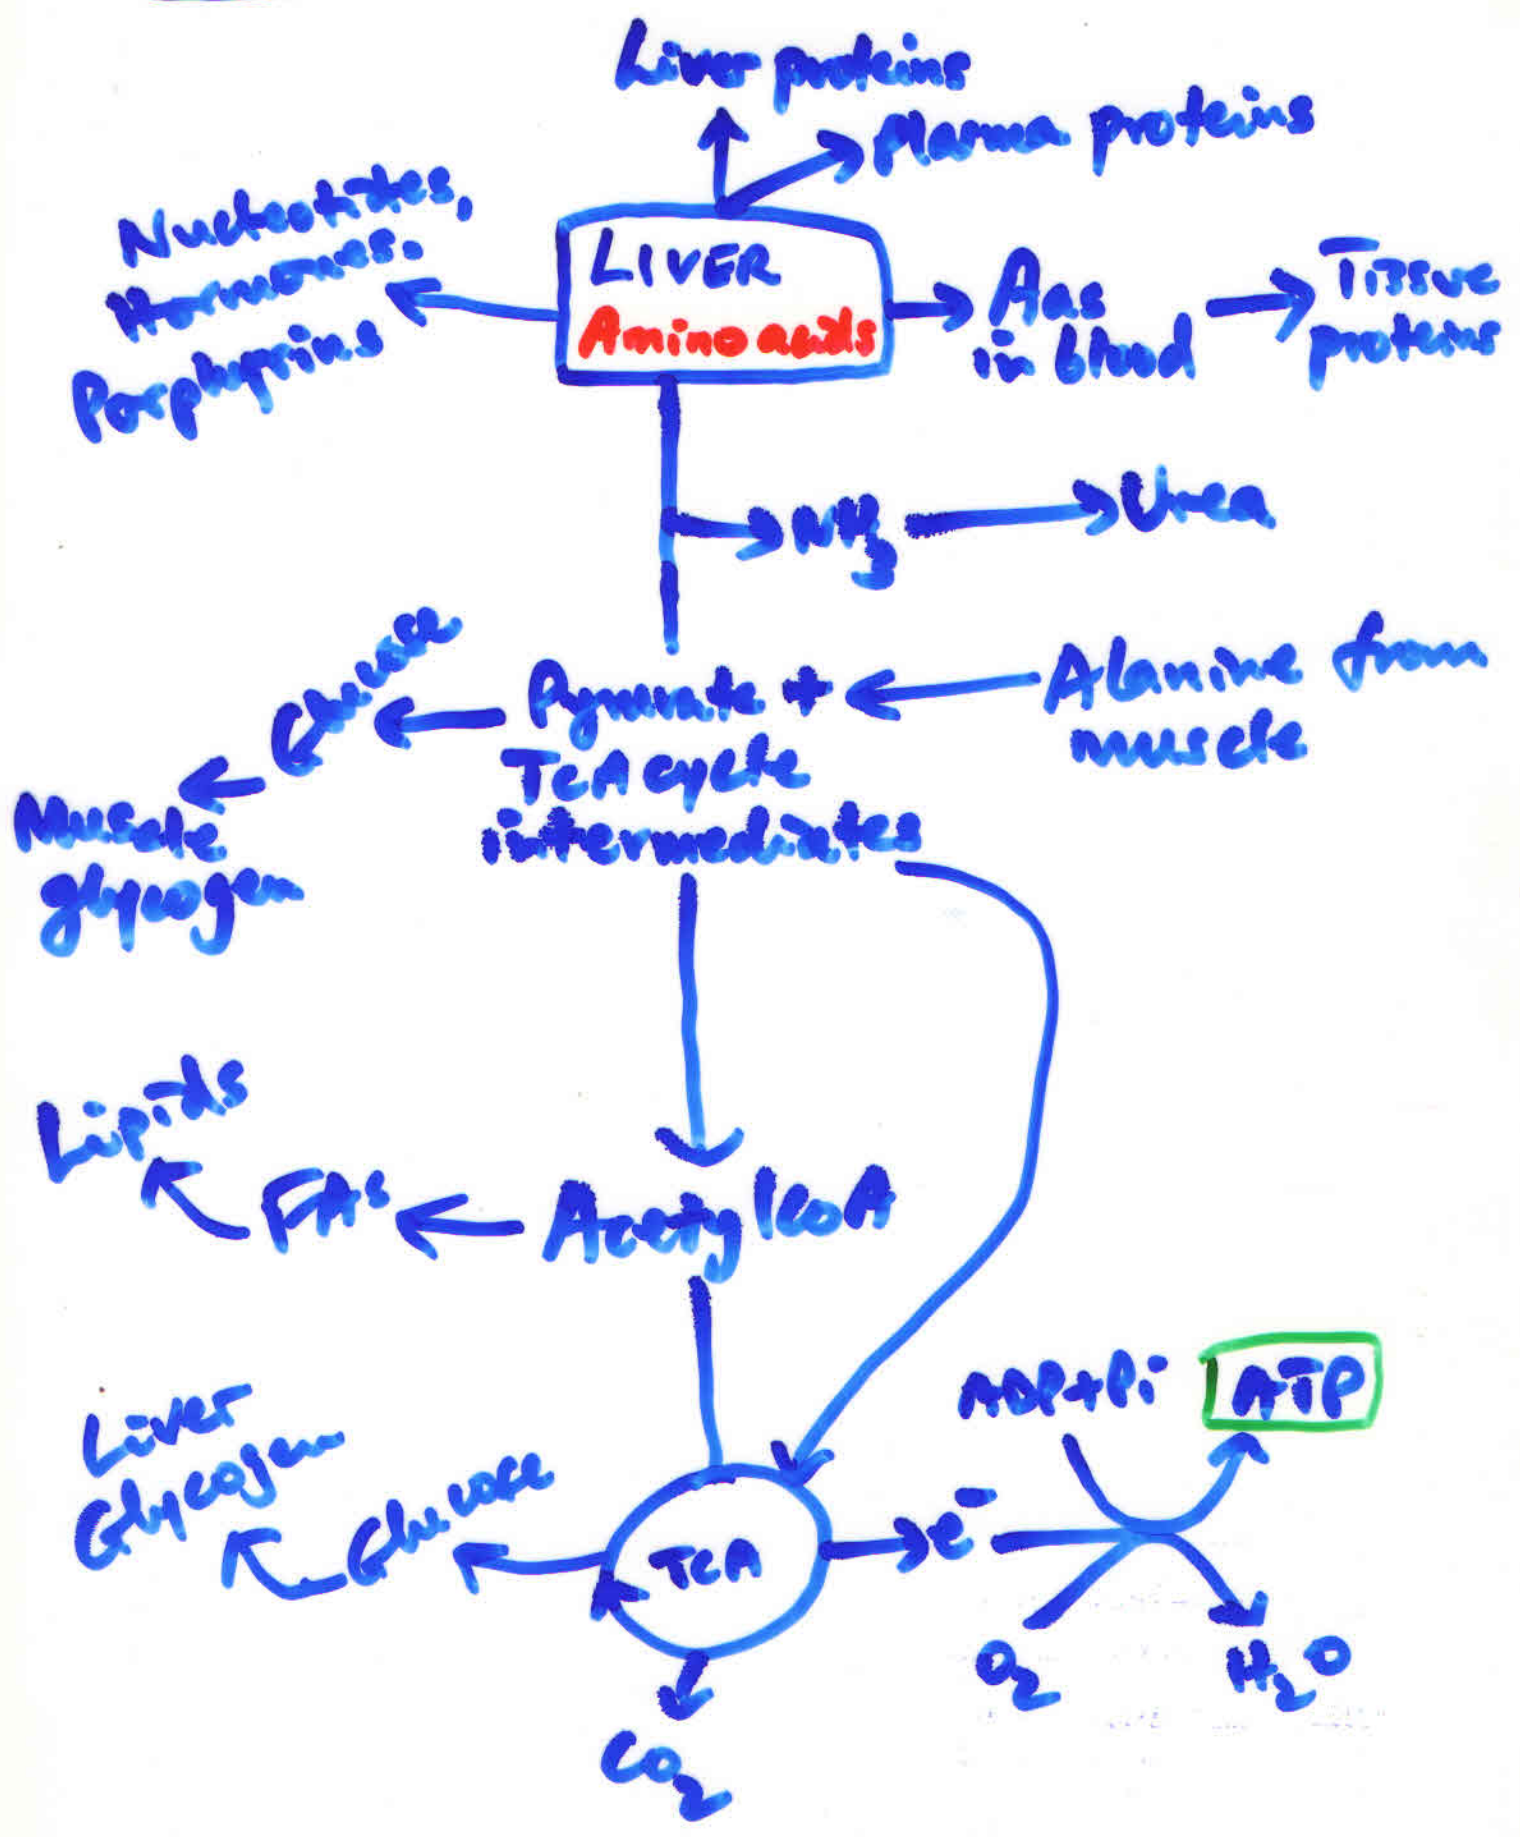 Liver proteins
Plasma proteins
Nucleotides,
Hormones.
Porphyrins
LIVER
Amino acids
Aas
in blood
Tissue
proteins
NH3
Urea
Glucose
Pyruvate +
TCA cycle
intermediates
Alanine from
muscle
Muscle
glycogen
Lipids
FAs
Acetyl CoA
ADP+Pi
ATP
Liver
Glycogen
Glucose
TCA
e-
O2
H2O
CO2